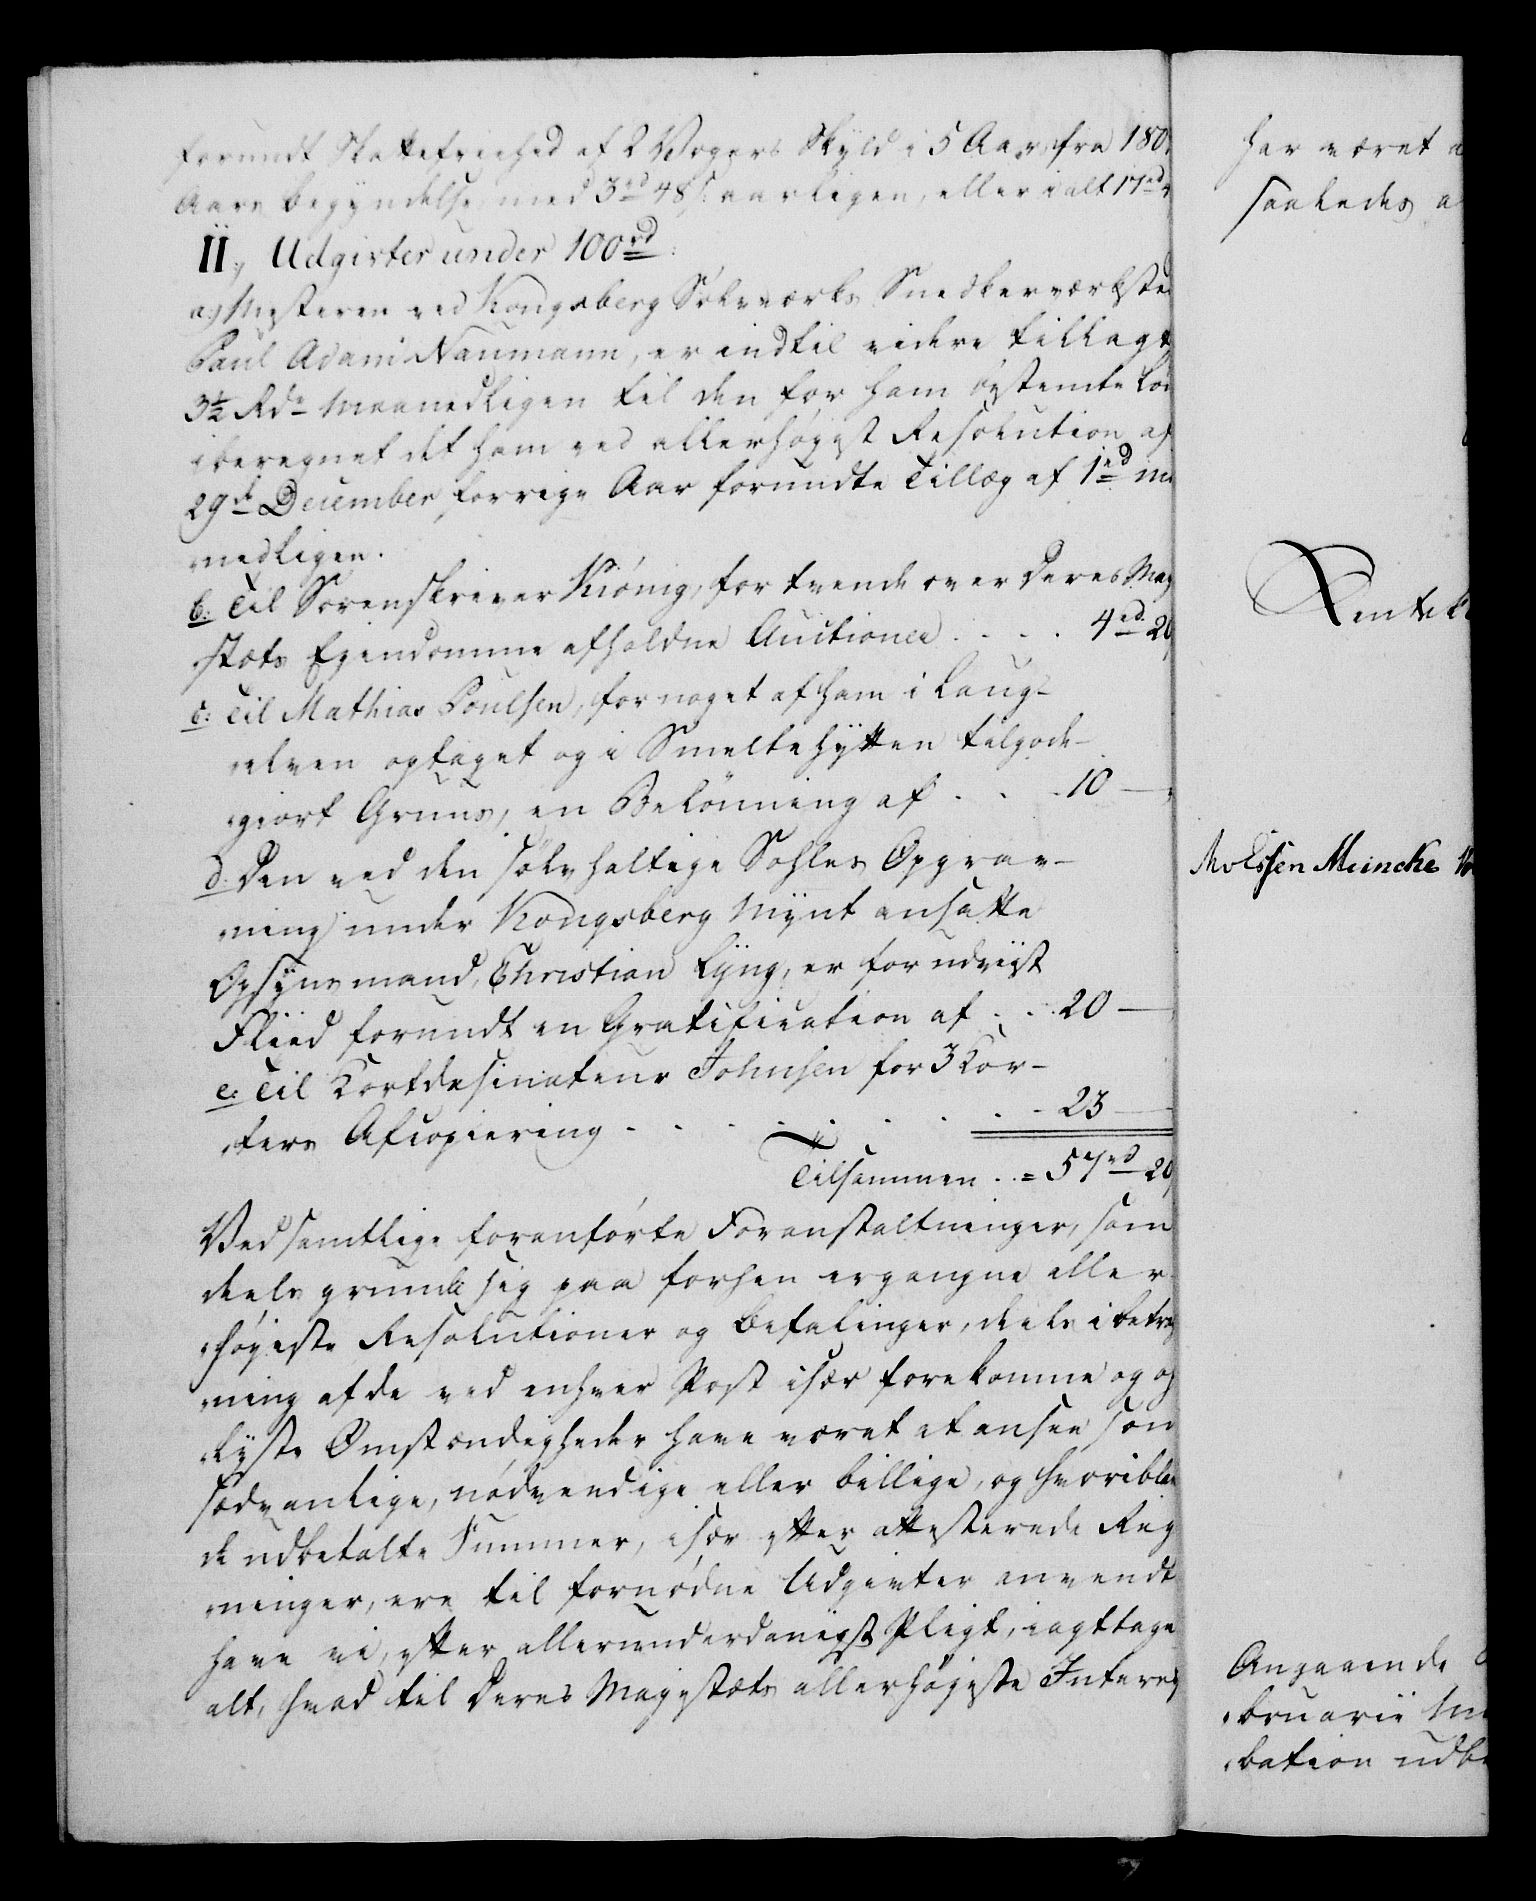 forundt Skattefriehed af 2 Vogers Skyld i 5 Aar, fra 180
Aars begyndelse med 3rd 48 s: aarligen, eller i alt 17rd
II, Udgivter under 100rd:
a.) Mesteren ved Kongsberg Sølvværks Snedkerværkste
Paul Adam Naumann, er indtil videre tillagt
3½ Rdr Maanedligen til den for ham bestemte Løn
iberegnet det ham ved allerhøyest Resolution af
29de December forrige Aar forundte Tillæg af 1rd m
nedligen.
b: Til Sorenskriver König, for tvende over Deres May
stæts Eyendomme afholdne Auctioner . . . . 4rd 20
c: Til Mathias Poulsen, for noget af ham i Laug-
elven optaget og i Smeltehytten tilgode-
giort Gruus, en Belönning af . . . 10 —
d. Den ved den sølvholtige Sohles Opgrav-
ning under Kongsberg Mynt ansatte
Opsynsmand, Christian Lyng, er for udviist
Fliid forundt en Gratification af . . . 20 —
e: Til Kortdesinateur Johnsen for 3 Kor-
ters Afcopiering . . . . . . . . 23 —
Tilsammen . . = 57rd 20
Ved samtlige foranførte Foranstaltninger, som
deels grunde sig paa forhen ergangne aller-
høyeste Resolutioner og Befalinger, deels i betrag
ning af de ved enhver Post især forekomne og op
lyste Omstændigheder have været at ansee som
sædvanlige, nødvendige eller billige, og hvoriblan
de udbetalte Summer, især efter attesterede Reg
ninger, ere til fornødne Udgivter anvendt
have vi, efter allerunderdanigst Pligt, iagttaget
alt, hvad til Deres Mayestæts allerhøyeste Interes
har været a
saaledes a
Rentek
MvEssen Meincke
Angaaende
bruarii
bation udb